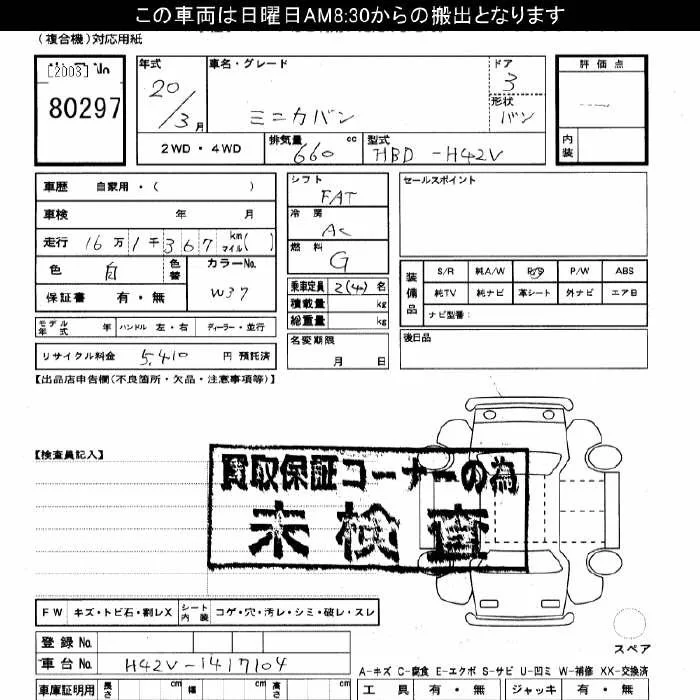 この車両は日曜日AM8:30からの搬出となります
(複合機)対応用紙
[2003]
80297
年式
20/3月
車名・グレード
ミニカバン
ドア
3
形状
バン
評価点
内装
2WD・4WD
排気量 660 cc
型式 HBD-H42V
車歴 自家用・( )
車検 年 月
走行 16万1千367 km マイル( )
色 白 色替
カラーNo. W37
保証書 有・無
モデル年式 年 ハンドル 左・右 ディーラー・並行
リサイクル料金 5,410 円 預託済
シフト FAT
冷房 AC
燃料 G
乗車定員 2(4)名
積載量 kg
総重量 kg
名変期限 月 日
セールスポイント
装備品
S/R 純A/W P/S P/W ABS
純TV 純ナビ 革シート 外ナビ エアB
ナビ型番:
後日品
【出品店申告欄(不良箇所・欠品・注意事項等)】
【検査員記入】
買取保証コーナーの為
未検査
FW キズ・トビ石・割レX シート内装 コゲ・穴・汚レ・シミ・破レ・スレ
スペア
登録No.
車台No. H42V-1417104
A-キズ C-腐食 E-エクボ S-サビ U-凹ミ W-補修 XX-交換済
車庫証明用 長さ cm 幅 cm 高さ cm
工具 有・無 ジャッキ 有・無